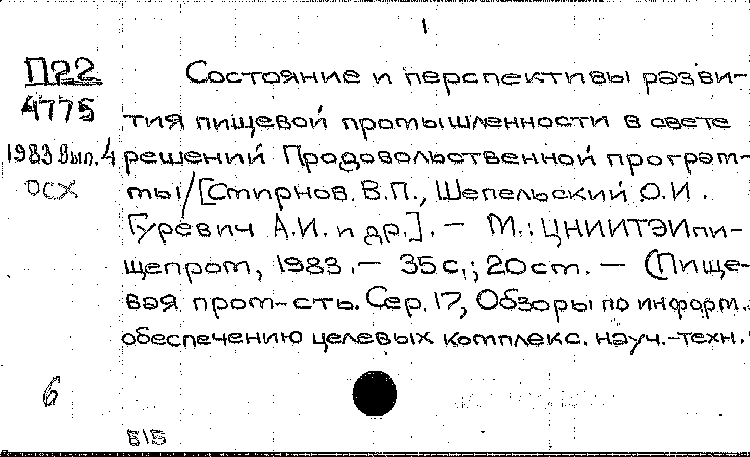 1
П22
4775
1983 Вып. 4
ОСХ
Состояние и перспективы разви-
тия пищевой промышленности в свете
решений Продовольственной програм-
мы/[Смирнов. В.П., Шепельский О.И.
Гуревич А.И. и др.]. — М.: ЦНИИТЭИпи-
щепром, 1983. — 35с.; 20см. — (Пище-
вая пром-сть. Сер. 17, Обзоры по информ.
обеспечению целевых комплекс. науч.-техн.
6
Б15